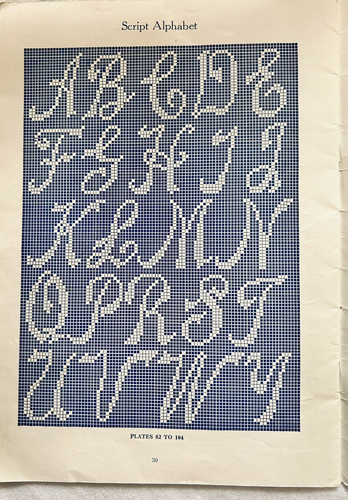 Script Alphabet
A B C D E
F G H I J
K L M N
Q P R S T
U V W Y
PLATES 82 TO 104
30